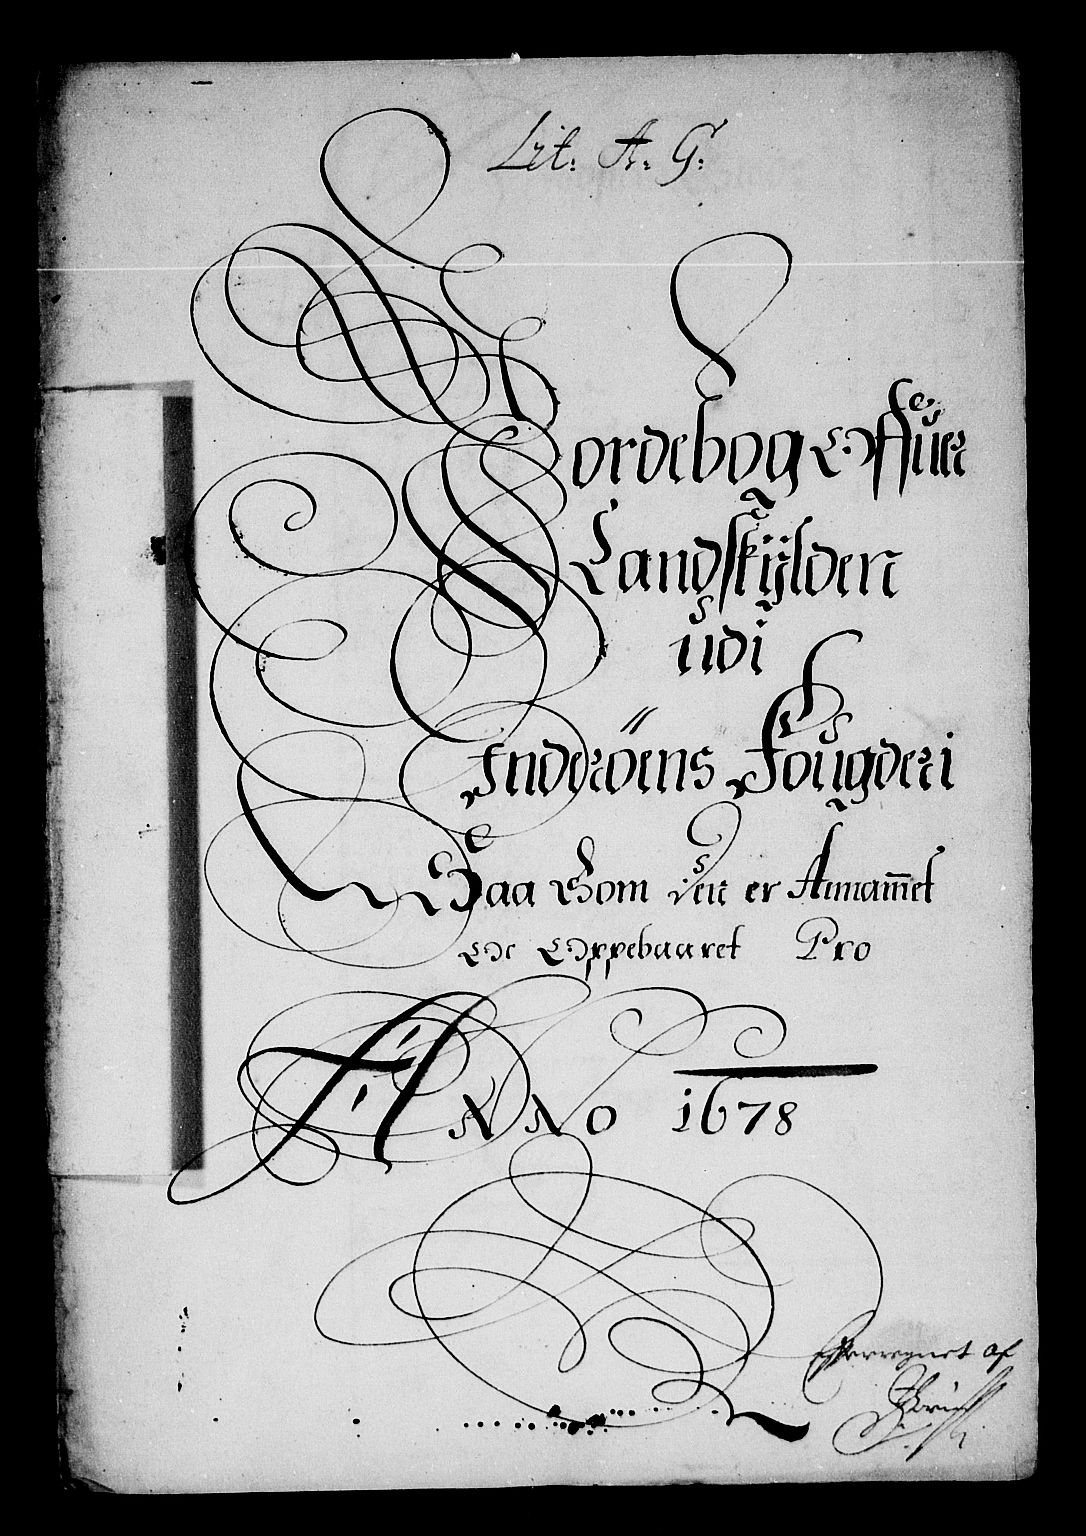 Lit: A: G:
Jordebog Offuer
Landskÿlden
udi
Inderöens Fougderi
Saa Som den er Annam̄et
Oc Oppebaaret Pro
ANNO 1678
Efterregnet af